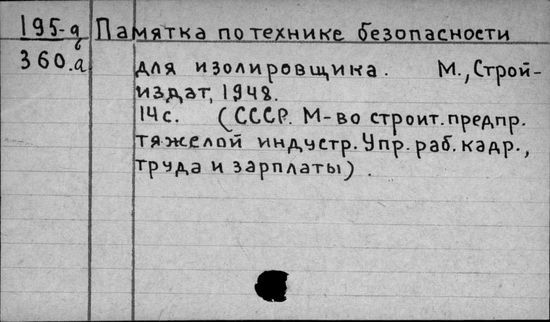 195-д Памятка по технике безопасности
б
360.а для изолировщика. М., Строй-
издат, 1948.
14с. (СССР. М-во строит. предпр.
тяжелой индустр. Упр. раб. кадр.,
труда и зарплаты).